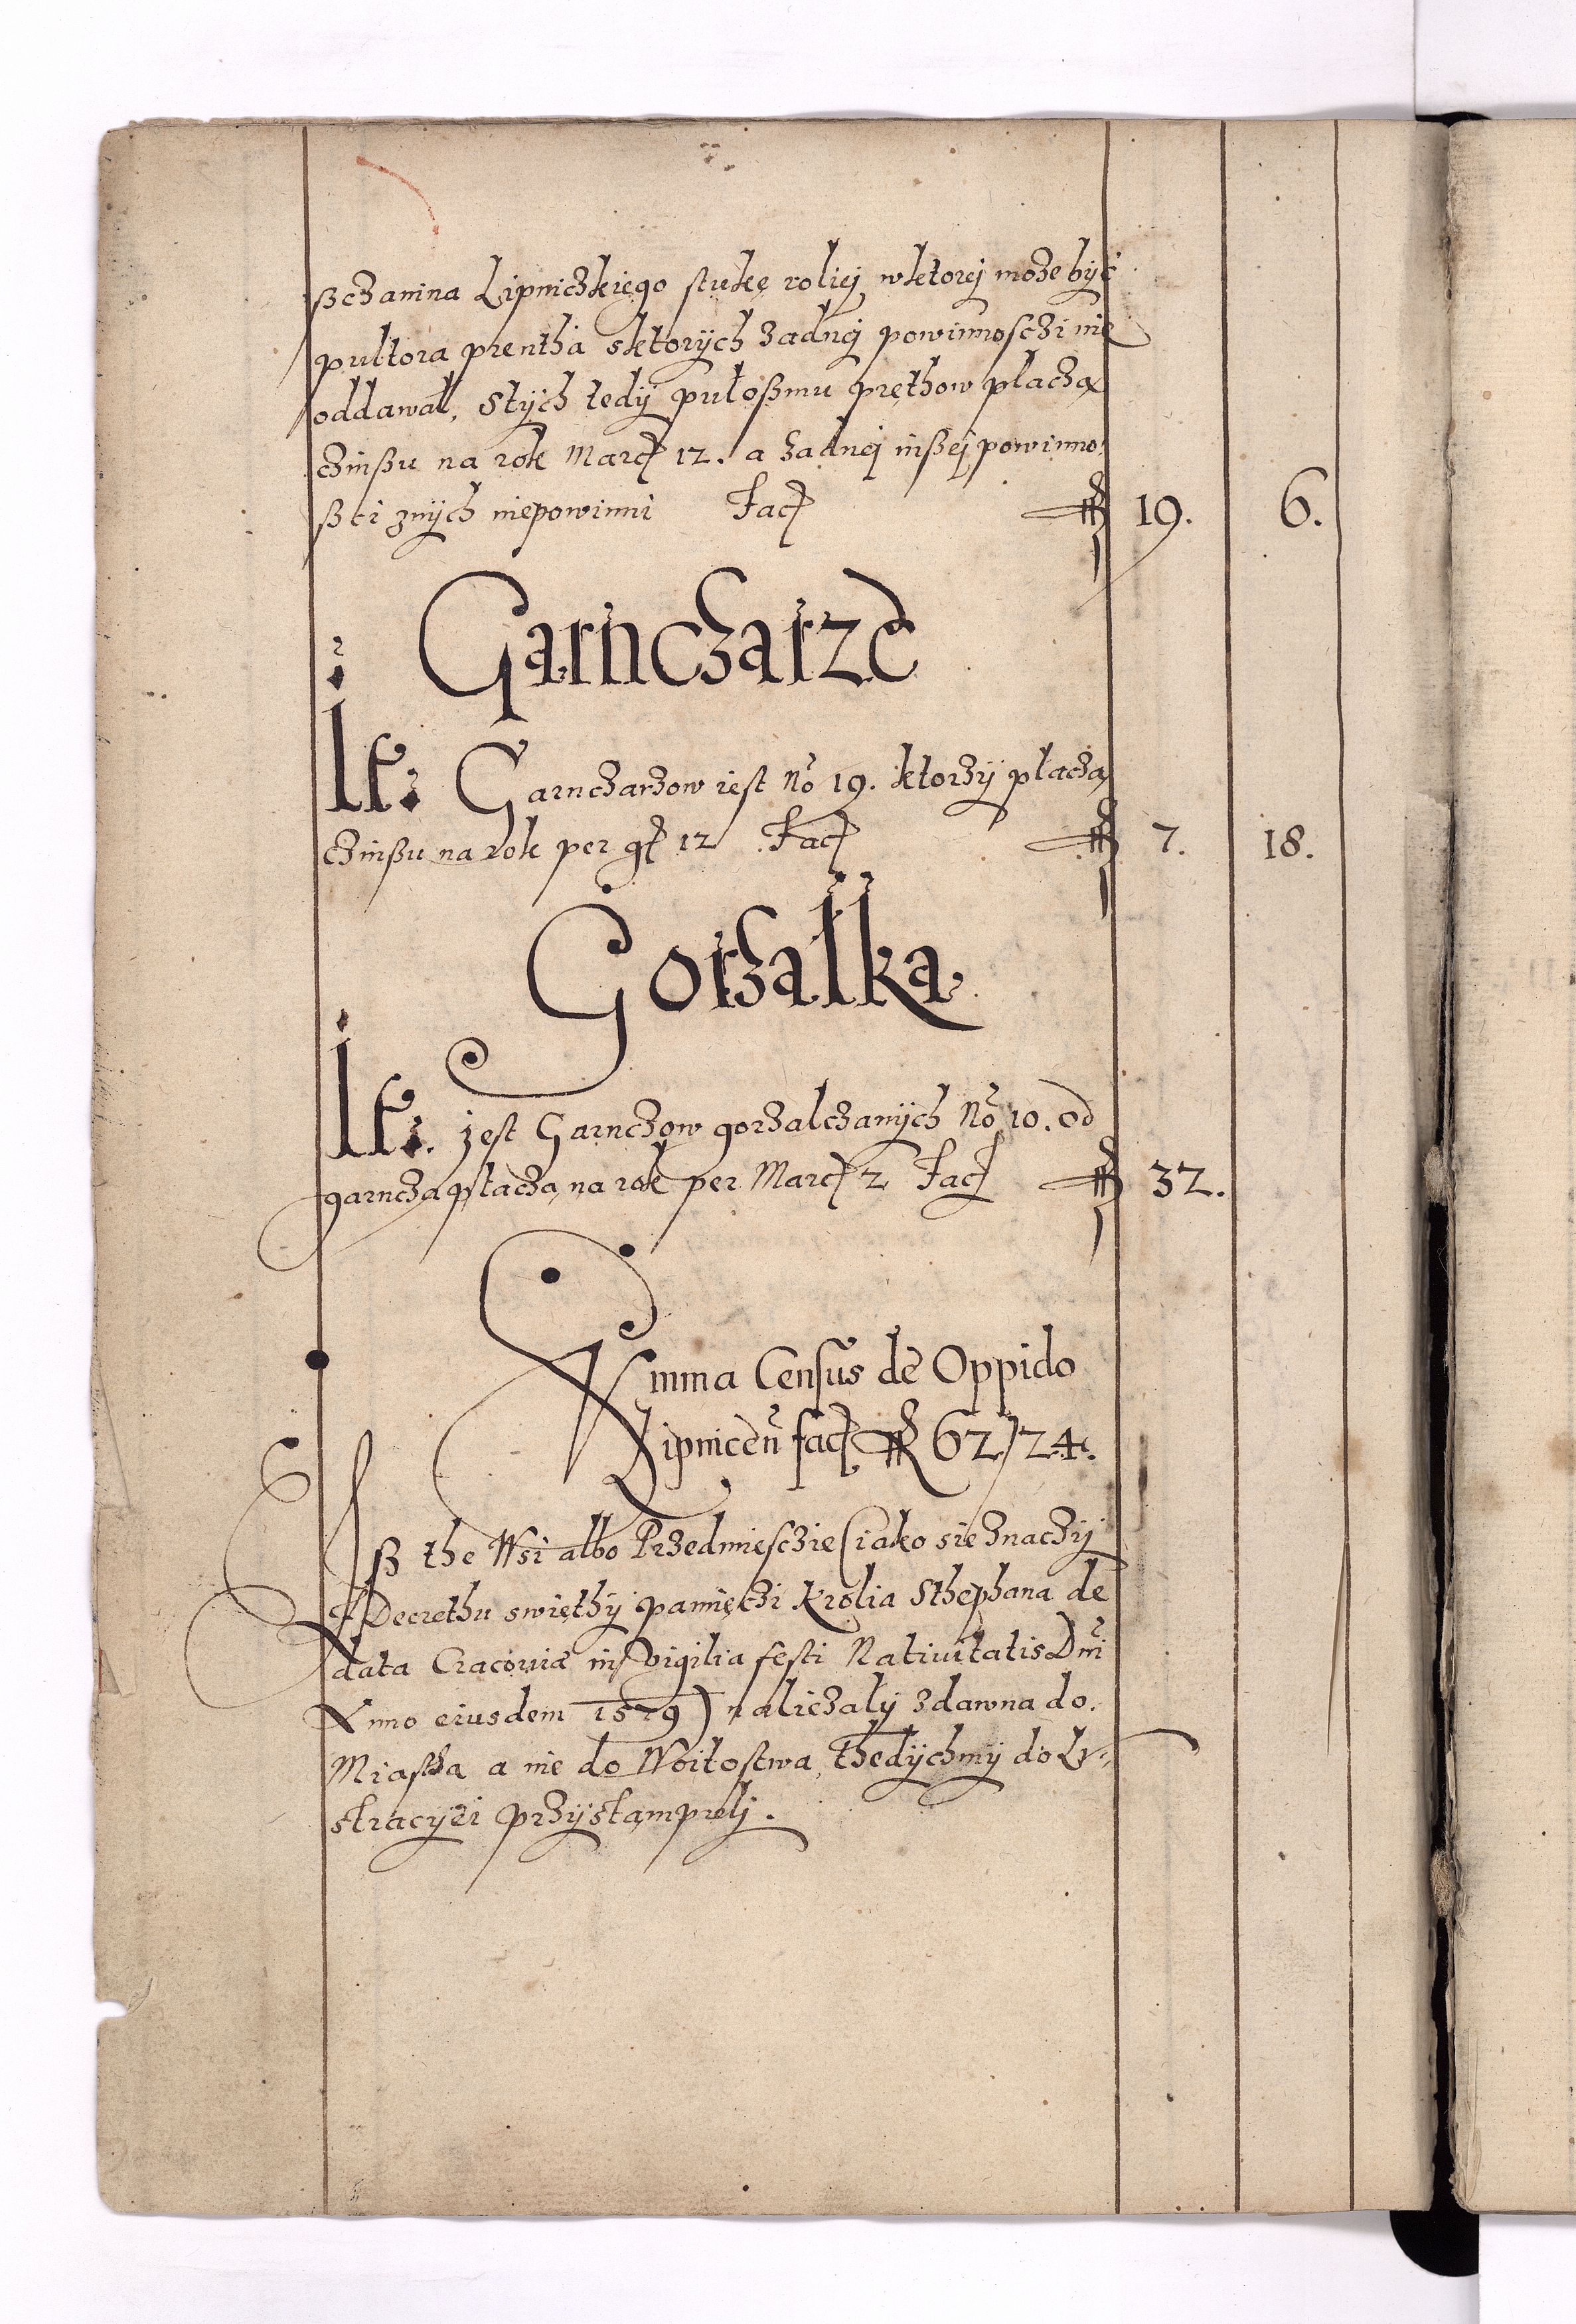 ßczanina Lipniczkiego stukę roliej wktorej może być
pułtora prentha sktorÿch żadnej powinnosczi nie
oddawał, Stÿch tedÿ pułoßmu pręthow płaczą
czinßu na rok Marc 12. a żadnej inßej powinno
ßci znÿch niepowinni Fac fl 19. 6.
Garnczarze
It: Garnczarzow iest No 19. ktorzÿ płaczą
czinßu na rok per gr 12 Fac fl 7. 18.
Gorzałka
It: jest Garnczow gorzalczanÿch No 10. od
garncza płaczą na rok per Marc 2 Fac fl 32.
Summa Census de Oppido
Lipnicen fac fl 62/24.
Iß the Wsi albo Przedmiesczie (iako sie znaczÿ
s Decrethu swięthÿ pamięczi Krolia Sthephana de
data Cracoviæ in Vigilia festi Nativitatis Dni
Anno eiusdem 1579) naliczałÿ zdawna do
Miastha a nie do Woitostwa, thedÿchmÿ do Lu-
stracyei przÿstąmpuelj.